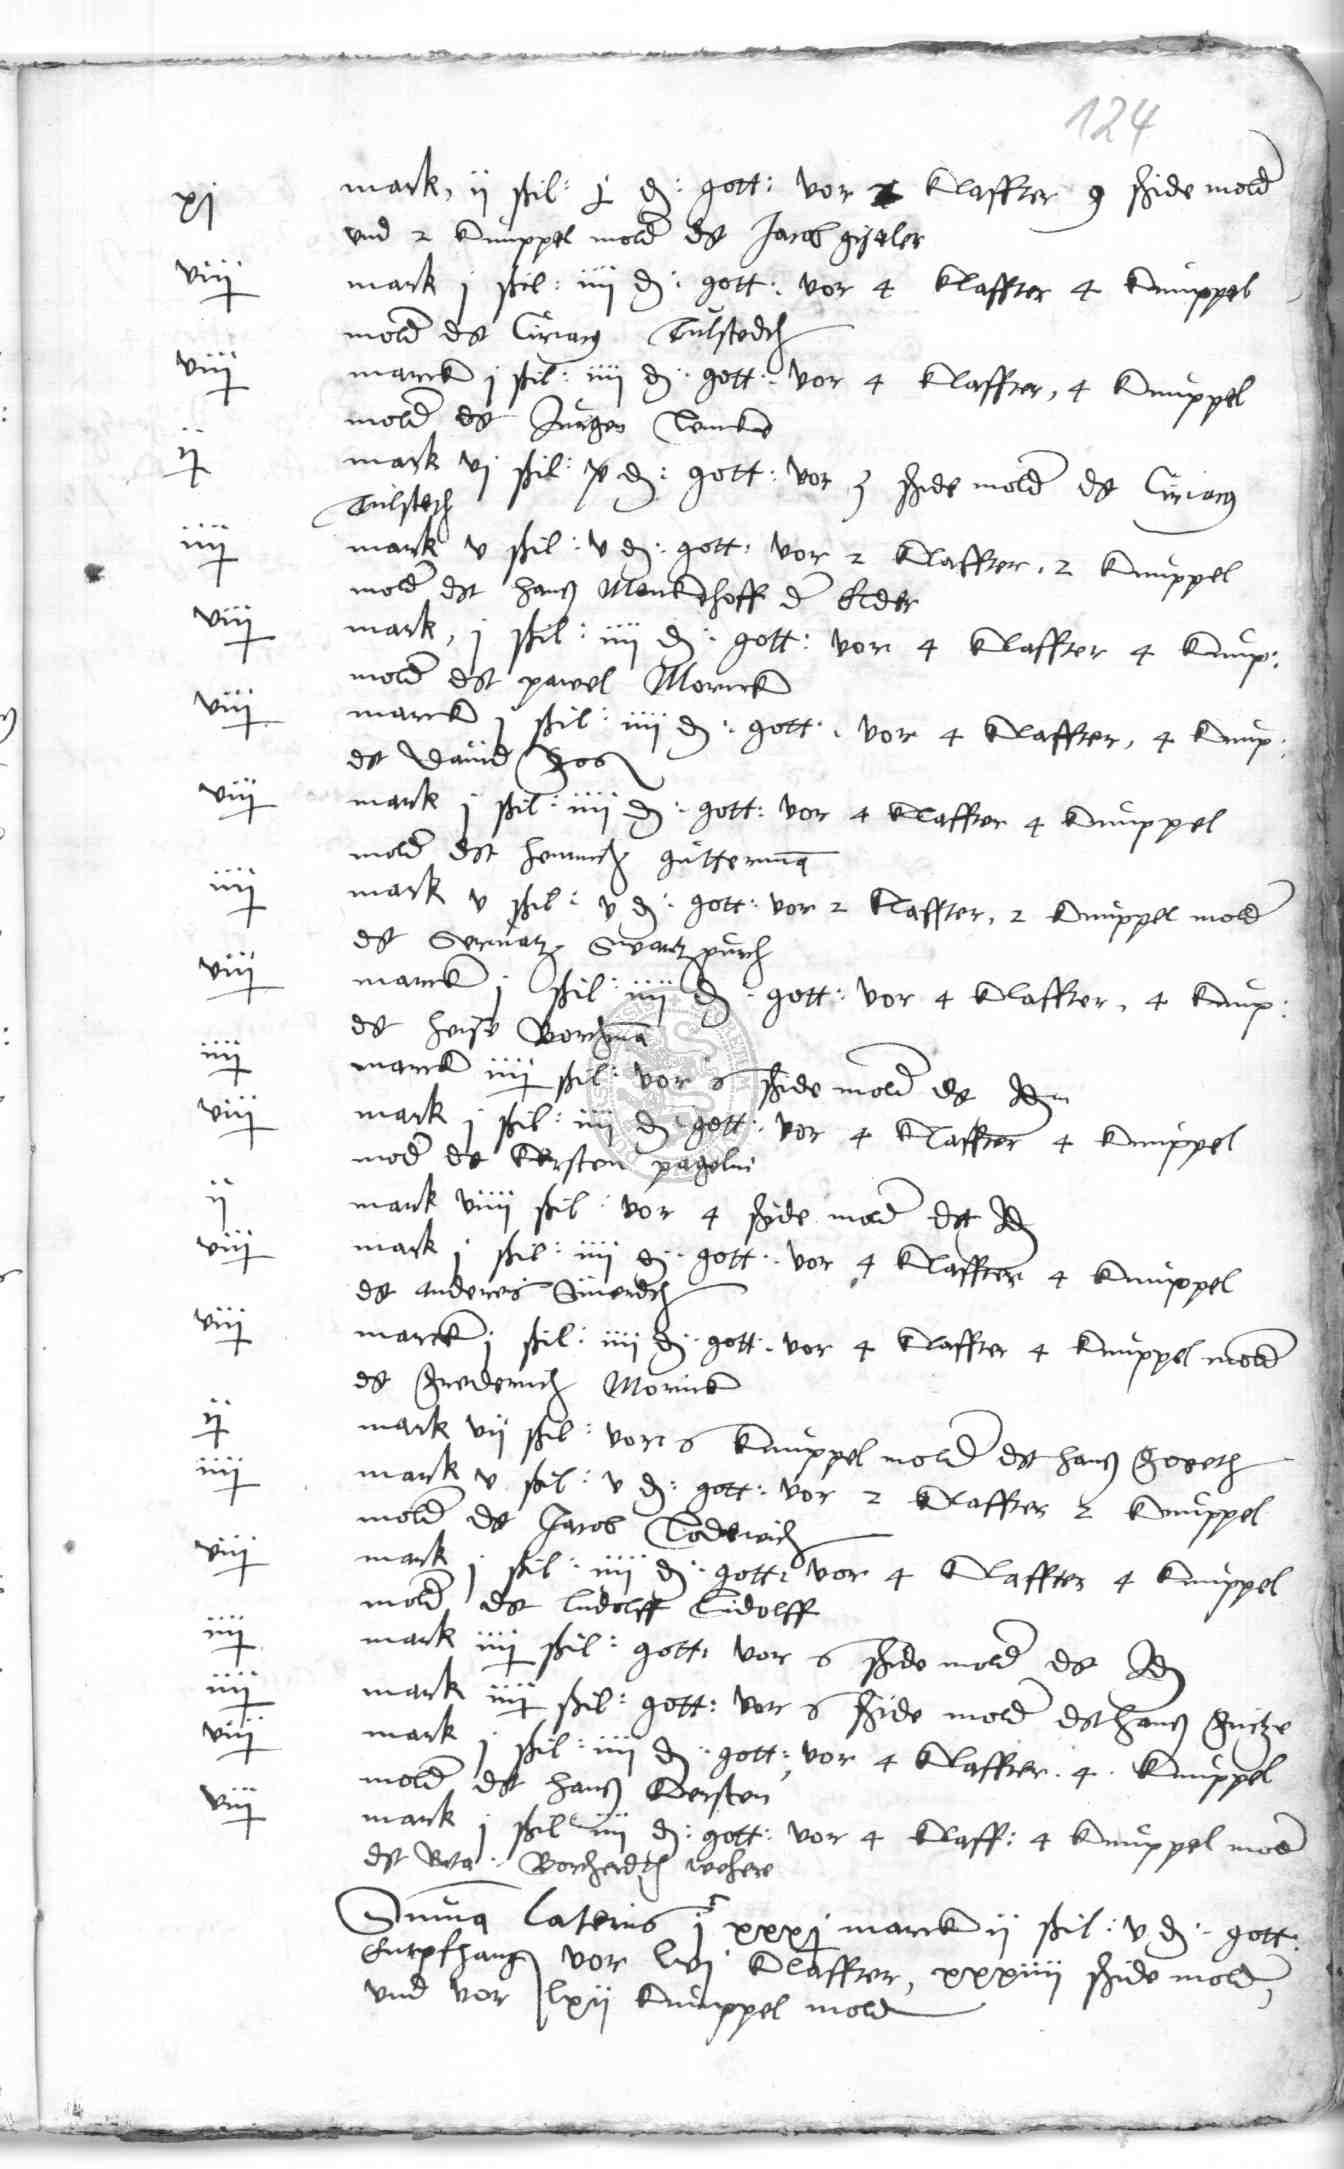 124
xj mark, ij ßil: j d: gott: vor 2 klaffter 9 schide mold
vnd 2 knuppel mold dt Jacob giseler
viij mark j ßil: iiij d: gott: vor 4 klaffter 4 knuppel
mold dt Ciriacg Tulstedch
viij marck j ßil: iiij d: gott: vor 4 klaffter, 4 knuppel
mold dt Jurgen
ij mark vj ßil: d: gott: vor 3 schide mold dt Ciriacg
Tulstech
iiij mark v ßil: v d: gott: vor 2 klaffter, 2 knuppel
mold dt hans Menckhoff d Elder
viij mark, j ßil: iiij d: gott: vor 4 klaffter 4 knup:
mold dt pawel Morick
viij marck j ßil: iiij d: gott: vor 4 klaffter, 4 knup:
dt Dauid
viij mark j ßil: iiij d: gott: vor 4 klaffter 4 knuppel
mold dt henrich gutterman
iiij mark v ßil: v d: gott: vor 2 klaffter, 2 knuppel mold
dt Seruatz Swartzpurch
viij marck j ßil: iiij d: gott: vor 4 klaffter, 4 knup:
dt heise Borchma
iiij marck iiij ßil: vor 6 schide mold dt Id
viij mark j ßil: iiij d: gott: vor 4 klaffter 4 knuppel
mod dt kersten pagelin
ij mark viiij ßil: vor 4 schide mold dt Id
viij mark j ßil: iiij d: gott: vor 4 klaffter 4 knuppel
dt anderes Siuerdch
viij marck j ßil: iiij d: gott: vor 4 klaffter 4 knuppel mold
dt frederich Morick
ij mark vij ßil: vor 6 knuppel mold dt hans
iiij mark v ßil: v d: gott: vor 2 klaffter 2 knuppel
mold dt Jacob Lodewich
viij mark j ßil: iiij d: gott: vor 4 klaffter 4 knuppel
mold dt ludolff Lidolff
iiij mark iiij ßil: gott: vor 6 schide mold dt Id
iiij mark iiij ßil: gott: vor 6 schide mold dt hans fritze
viij mark j ßil: iiij d: gott: vor 4 klaffter. 4. knuppel
mold dt hans kersten
viij mark j ßil iiij d: gott: vor 4 klaff: 4 knuppel mod
dt Borcherdch wesere
Suma lateris jc xxxj marck ij ßil: v d: gott:
Entpfhang vor lvj klaffter, xxxiiij schide mold,
vnd vor lxij knuppel mold